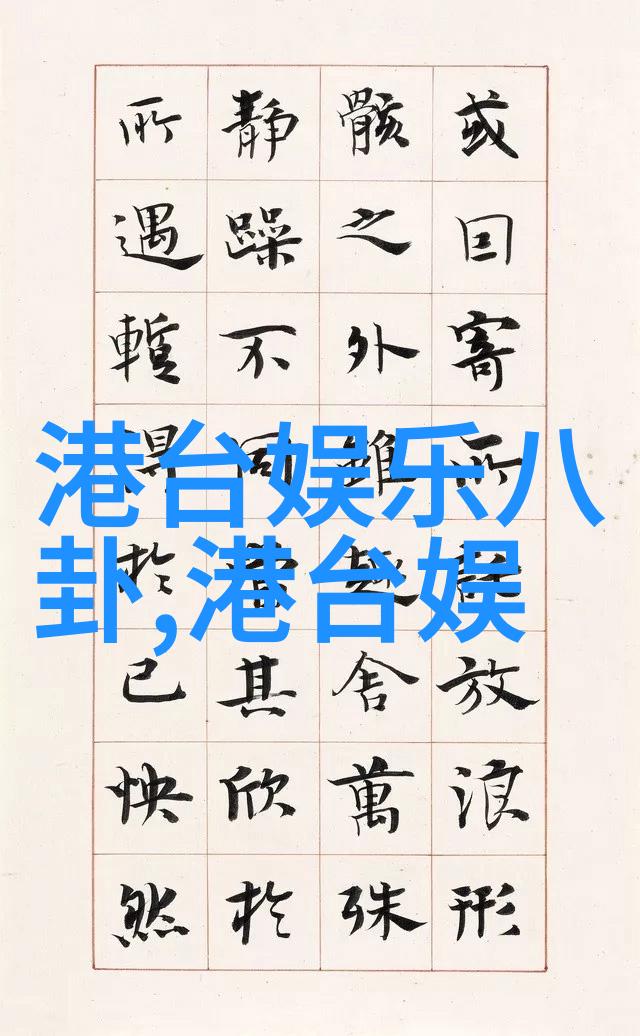 港台娱乐八
卦,港台娱
或囙寄所託放浪形
骸之外雖趣舍萬殊
靜躁不同當其欣於
所遇暫得於己怏然